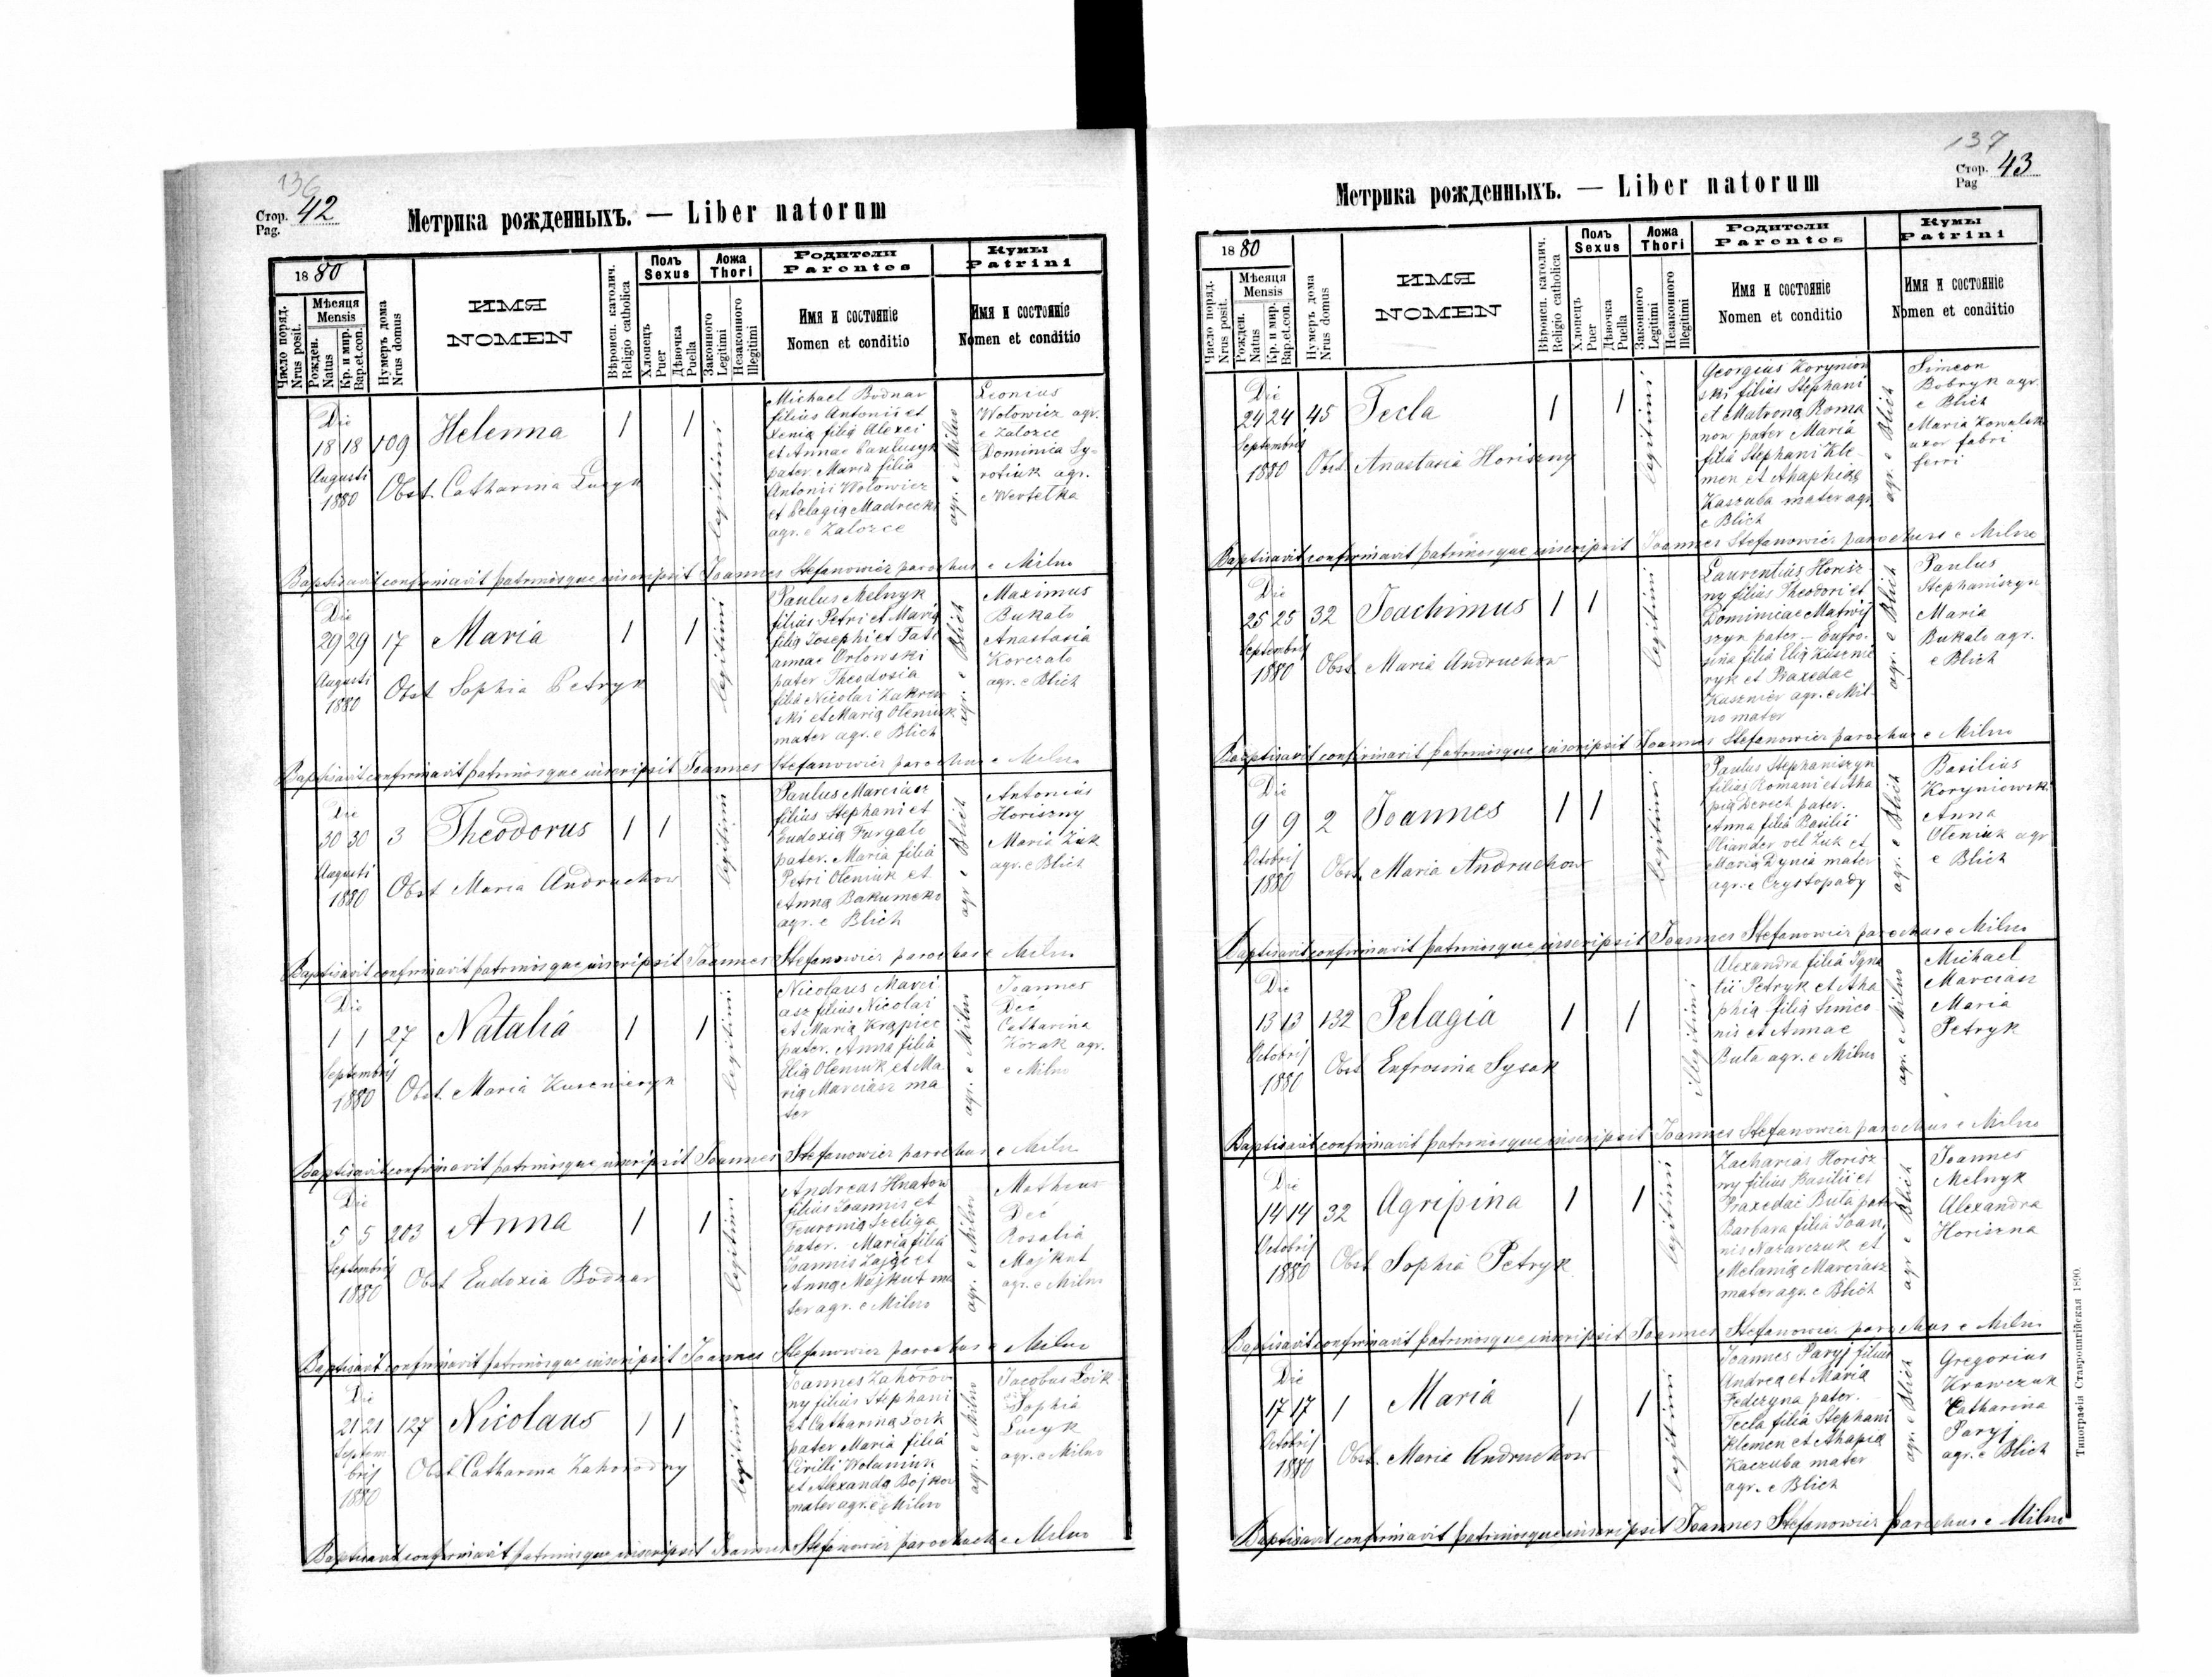 136
Стор. 42
Pag.
Метрика рожденныхъ. — Liber natorum
1880
Число поряд.
Nrus posit.
Мѣсяця
Mensis
Рожден.
Natus
Кр. и мир.
Bap.et.con.
Нумеръ дома
Nrus domus
ИМЯ
NOMEN
Вѣроисп. католич.
Religio catholica
Полъ
Sexus
Хлопецъ
Puer
Дѣвочка
Puella
Ложа
Thori
Законного
Legitimi
Незаконного
Illegitimi
Родители
Parentes
Имя и состояніе
Nomen et conditio
Кумы
Patrini
Имя и состояніе
Nomen et conditio
Die
18 18 109 Helenna 1 1
Augusti
1880
Obst. Catharina Lucyk
legitimi
Michael Bodnar
filius Antonii et
Xenia filia Alexei
et Annae Paulusyk
pater Maria filia
Antonii Wolowicz
et Pelagia Madrecki
agr. e Zalozce
agr. e Milno
Leonius
Wolowicz agr.
e Zalozce
Dominia Sy-
rotiuk agr.
e Wertelka
Baptisavit confirmavit patrinosque inscripsit Joannes Stefanowicz parochus e Milno
Die
29 29 17 Maria 1 1
Augusti
1880
Obst Sophia Petryk
legitimi
Paulus Melnyk
filius Petri et Maria
filia Josephi et Tati
annae Orlowski
pater Theodosia
filia Nicolai Zakrew
ski et Maria Oleniuk
mater agr. e Blich
agr. e Blich
Maximus
Bukalo
Anastasia
Korczalo
agr. e Blich
Baptisavit confirmavit patrinosque inscripsit Joannes Stefanowicz parochus e Milno
Die
30 30 3 Theodorus 1 1
Augusti
1880
Obst Maria Andruchow
legitimi
Paulus Marciasz
filius Stephani et
Eudoxia Furgalo
pater. Maria filia
Petri Oleniuk et
Anna Bakumenko
agr. e Blich
agr e Blich
Antonius
Horiszny
Maria Zuk
agr. e Blich
Baptisavit confirmavit patrinosque inscripsit Joannes Stefanowicz parochus e Milno
Die
1 1 27 Natalia 1 1
Septembris
1880
Obst. Maria Kuseniczyn
legitimi
Nicolaus Marci
asz filius Nicolai
et Maria Krapiec
pater. Anna filia
Elia Oleniuk et Ma
ria Marciasz ma
ter
agr. e Milno
Joannes
Deć
Catharina
Kozak agr.
e Milno
Baptisavit confirmavit patrinosque inscripsit Joannes Stefanowicz parochus e Milno
Die
5 5 203 Anna 1 1
Septembris
1880
Obst Eudoxia Bodnar
legitimi
Andreas Hnatow
filius Joannis et
Feuronia Szeliga
pater. Maria filia
Joannis Zajac et
Anna Majkut ma
ter agr. e Milno
agr. e Milno
Matheus
Deć
Rosalia
Majkut
agr. e Milno
Baptisavit confirmavit patrinosque inscripsit Joannes Stefanowicz parochus e Milno
Die
21 21 127 Nicolaus 1 1
Septem
bris
1880
Obst. Catharina Zahorodny
legitimi
Joannes Zahorod
ny filius Stephani
et Catharina Loik
pater Maria filia
Cirilli Wolaniuk
et Alexanda Bojkow
mater agr. e Milno
agr. e Milno
Jacobus Loik
Sophia
Lucyk
agr. e Milno
Baptisavit confirmavit patrinosque inscripsit Joannes Stefanowicz parochus e Milno
137
Стор. 43
Pag
Метрика рожденныхъ. — Liber natorum
1880
Число поряд.
Nrus posit.
Мѣсяця
Mensis
Рожден.
Natus
Кр. и мир.
Bap.et.con.
Нумеръ дома
Nrus domus
ИМЯ
NOMEN
Вѣроисп. католич.
Religio catholica
Полъ
Sexus
Хлопецъ
Puer
Дѣвочка
Puella
Ложа
Thori
Законного
Legitimi
Незаконного
Illegitimi
Родители
Parentes
Имя и состояніе
Nomen et conditio
Кумы
Patrini
Имя и состояніе
Nomen et conditio
Die
24 24 45 Tecla 1 1
Septembris
1880
Obst. Anastasia Horiszny
legitimi
Georgius Korynion
ski filius Stephani
et Matrona Roma
non pater Maria
filia Stephani Kle-
men et Ahaphia
Kaszuba mater agr.
e Blich
agr. e Blich
Simeon
Bobryk agr.
e Blich
Maria Kowalsk
uxor fabri
ferri
Baptisavit confirmavit patrinosque inscripsit Joannes Stefanowicz parochus e Milno
Die
25 25 32 Joachimus 1 1
Septembris
1880
Obst. Maria Andruchow
legitimi
Laurentius Horisz
ny filius Theodori et
Dominicae Matwij
szyn pater - Eufro-
sina filia Elia Kuseni
ryk et Praxedae
Kusznier agr. e Mil-
no mater
agr. e Blich
Paulus
Stephaniszyn
Maria
Bukalo agr.
e Blich
Baptisavit confirmavit patrinosque inscripsit Joannes Stefanowicz parochus e Milno
Die
9 9 2 Joannes 1 1
Octobris
1880
Obst. Maria Andruchow
legitimi
Paulus Stephaniszyn
filius Romani et Aha
pia Derech pater.
Anna filia Basilii
Oliander vel Zuk et
Maria Dynia mater
agr. e Czystopady
agr. e Blich
Basilius
Koryniewski
Anna
Oleniuk agr
e Blich
Baptisavit confirmavit patrinosque inscripsit Joannes Stefanowicz parochus e Milno
Die
13 13 132 Pelagia 1 1
Octobris
1880
Obst Eufrosina Sysak
illegitimi
Alexandra filia Igna
tii Petryk et Aha
phia filia Simeo
nis et Annae
Buta agr. e Milno
agr. e Milno
Michael
Marciasz
Maria
Petryk
Baptisavit confirmavit patrinosque inscripsit Joannes Stefanowicz parochus e Milno
Die
14 14 32 Agripina 1 1
Octobris
1880
Obst Sophia Petryk
legitimi
Zacharias Horisz
ny filius Basilii et
Praxedai Buta pater
Barbara filia Joan,
nis Nazarczuk et
Melania Marciasz
mater agr. e Blich
agr e Blich
Joannes
Melnyk
Alexandra
Horiszna
Baptisavit confirmavit patrinosque inscripsit Joannes Stefanowicz parochus e Milno
Die
17 17 1 Maria 1 1
Octobris
1880
Obst. Maria Andruchow
legitimi
Joannes Paryj filius
Andrea et Maria
Fedczyna pater.
Tecla filia Stephani
Klemen et Ahapia
Kaczuba mater
agr. e Blich
agr. e Blich
Gregorius
Krawczuk
Catharina
Paryj
agr. e Blich
Baptisavit confirmavit patrinosque inscripsit Joannes Stefanowicz parochus e Milno
Типографія Ставропигійская 1890.